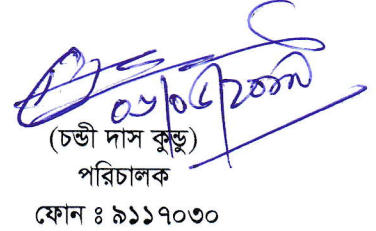 (চন্ডী দাস কুন্ডু)
পরিচালক
ফোন ঃ ৯১১৭০৩০